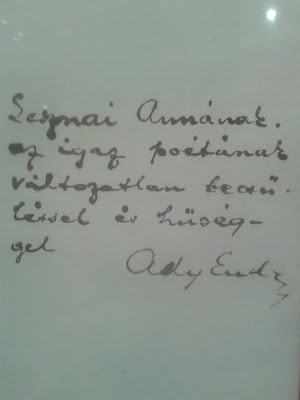 Lesznai Annának.
az igaz poétának
változatlan becsü-
léssel és hüség-
gel
Ady Endre